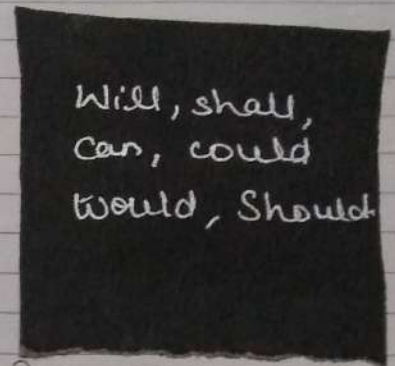 Will, shall,
can, could
would, Should